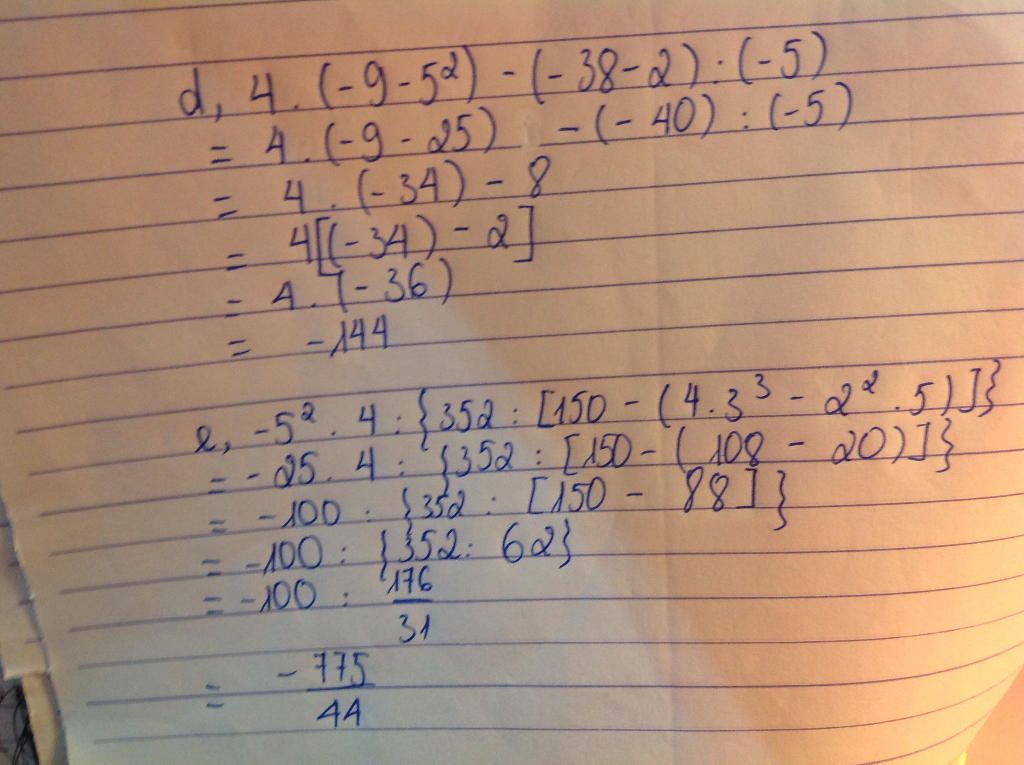 d, 4 . (-9 - 5²) - (-38 - 2) : (-5)
= 4 . (-9 - 25) - (-40) : (-5)
= 4 . (-34) - 8
= 4[(-34) - 2]
= 4 . (-36)
= -144
e, -5² . 4 : {352 : [150 - (4 . 3³ - 2² . 5)]}
= -25 . 4 : {352 : [150 - (108 - 20)]}
= -100 : {352 : [150 - 88]}
= -100 : {352 : 62}
= -100 : 176/31
= -775/44